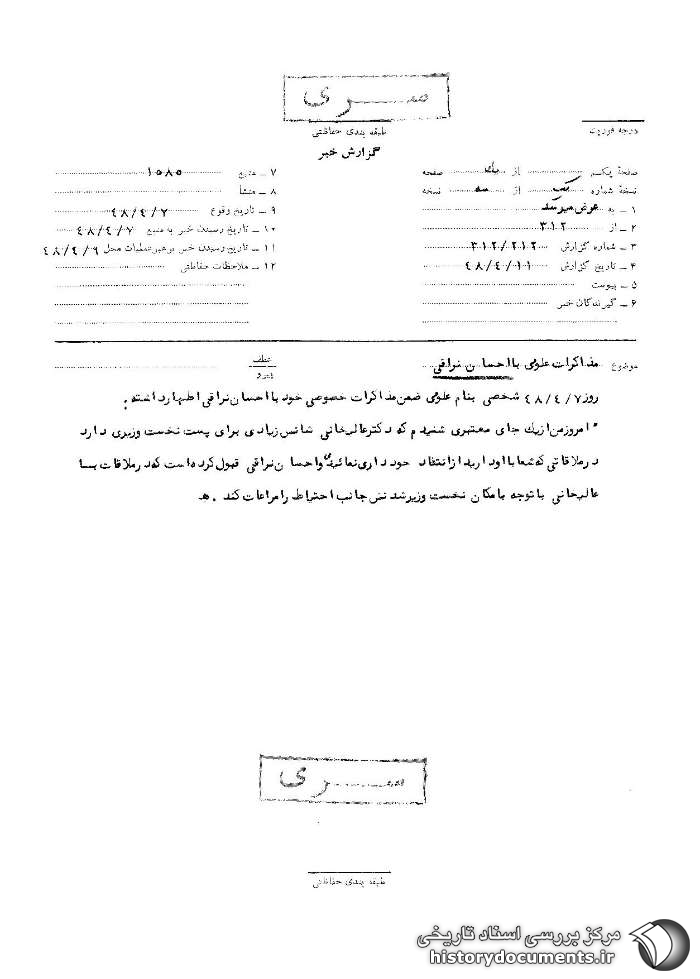 سری
طبقه بندی حفاظتی
درجه فوریت
گزارش خبر
صفحه یکم از یک صفحه
نسخه شماره یک از سه نسخه
۱ ـ به عرض میرسد
۲ ـ از ۳۱۲
۳ ـ شماره گزارش ۳۱۲/۲۱۲
۴ ـ تاریخ گزارش ۴۸/۴/۱۱
۵ ـ پیوست
۶ ـ گیرندگان خبر
۷ ـ منبع ۱۵۸۵
۸ ـ منشأ
۹ ـ تاریخ وقوع ۴۸/۴/۷
۱۰ ـ تاریخ رسیدن خبر به منبع ۴۸/۴/۷
۱۱ ـ تاریخ رسیدن خبر برهبر عملیات محل ۴۸/۴/۹
۱۲ ـ ملاحظات حفاظتی
موضوع مذاکرات علومی با احسان نراقی
عطف
روز ۴۸/۴/۷ شخصی بنام علومی ضمن مذاکرات خصوصی خود با احسان نراقی اظهار داشته:
"امروز من از یک جای معتبری شنیدم که دکتر عالیخانی شانس زیادی برای پست نخست وزیری دارد
در ملاقاتی که شما با او دارید از انتقاد خودداری نمائید" و احسان نراقی قبول کرده است که در ملاقات بسا
عالیخانی با توجه بامکان نخست وزیر شدنش جانب احتیاط را مراعات کند. ه
سری
طبقه بندی حفاظتی
مرکز بررسی اسناد تاریخی
historydocuments.ir